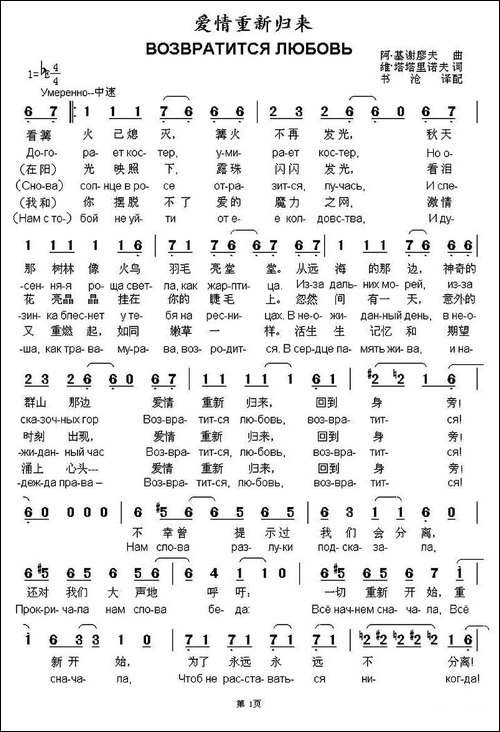 爱情重新归来
ВОЗВРАТИТСЯ ЛЮБОВЬ
阿·基谢廖夫 曲
1=♭E 4/4
维·塔塔里诺夫 词
书 沧 译配
Умеренно--中速
看篝 火 已熄 灭, 篝火 不再 发光, 秋天
До-го- ра-ет кос-тер, у-ми- ра-ет кос-тер, Но о-
(在阳) 光 映照 下, 露珠 闪闪 发光, 看泪
(Сно-ва) сол-нце в ро- се от-ра- зит-ся, лу-чась, И сле-
(我和) 你 摆脱 不了 爱的 魔力 之网, 激情
(Нам с то-) бой не уй- ти от е- е кол- довс-тва, И ду-
1 1 1 1 1 6 7 1 7 6 6 0 6 7 6 6 6 6 1 7 1 6
那 树林 像 火鸟 羽毛 亮堂 堂。 从远 海 的那 边, 神奇的
-сен-ня-я ро- ща свет-ла, как жар-птица. Из-за даль- них мо-рей, из-за
花 亮晶 晶 挂在 你的 睫毛 上。 忽然 间 有一 天, 意外的
зин-ка блес-нет у те-бя на рес-ни- цах. В не-о- жи-дан-ный день, в не-о-
又 重燃 起, 如同 嫩草 一 样。 活生 生 记忆 和 期望
-ша, как тра-ва- му-ра-ва, воз-ро-дит-ся. В сер-дце па-мять жи-ва, и на-
2 3 2 6 6 0 6 7 1 1 1 1 1 0 6 1 ♯2 ♮2 1 6
群山 那边 爱情 重新 归来, 回到 身 旁!
ска-зоч-ных гор Воз-вра- тит-ся лю-бовь, воз-вра- тит- ся!
时刻 出现, 爱情 重新 归来, 回到 身 旁!
-жи-дан- ный час Воз-вра- тит-ся лю-бовь, воз-вра- тит- ся!
涌上 心头--- 爱情 重新 归来, 回到 身 旁!
-деж-да пра-ва – Воз-вра- тит-ся, лю-бовь, воз-вра- тит- ся!
6 0 0 0 0 6 ♯5 6 5 6 5 6 5 6 5
不 幸曾 提 示过 我 们 会 分 离,
Нам сло-ва раз- лу-ки под-ска- за- ла,
还对 我们 大 声地 呼 吁: 一切 重新 开始, 重
Прок-ри-ча-ла нам сло-ва бе- да: Всё нач-нем сна-ча- ла, Всё
新 开 始, 为了 永远 永远 不 分离!
сна-ча- ла, Чтоб не рас-ста- вать-ся ни- ког-да!
第 1页